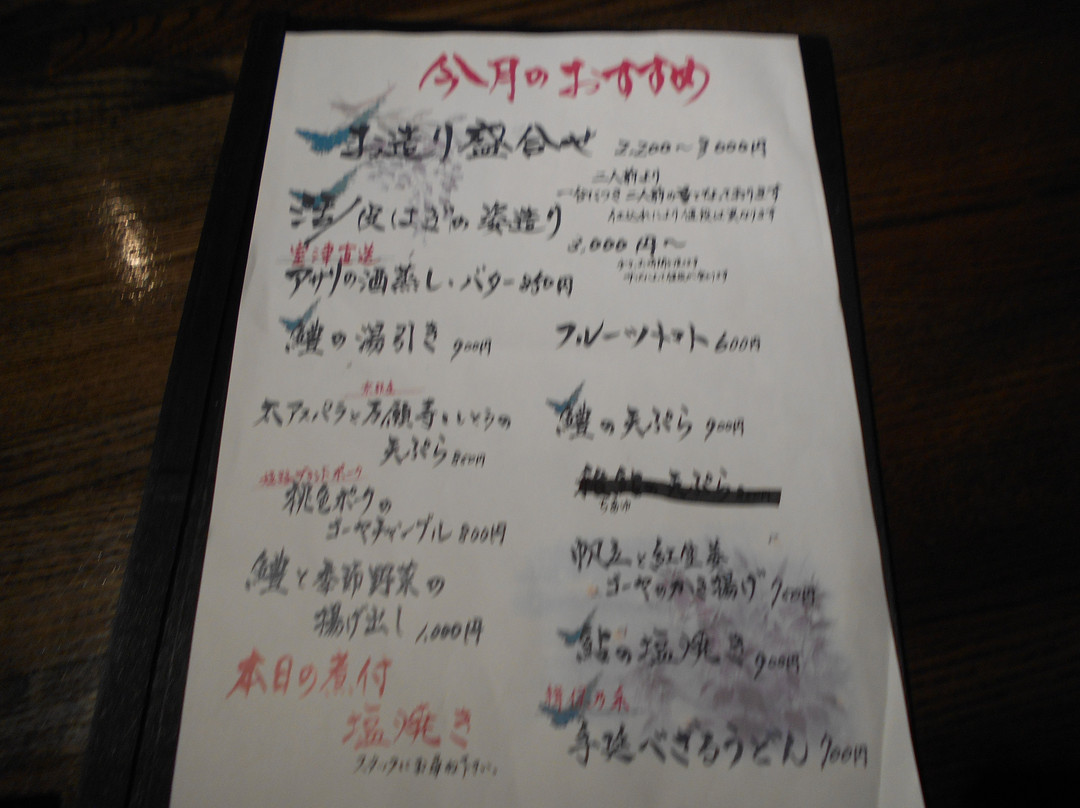 今月のおすすめ
お造り盛合せ 2,200〜3,000円
二人前より
活皮はぎの姿造り
3,000円〜
室津直送
アサリの酒蒸し・バター 850円
鱧の湯引き 900円
フルーツトマト 600円
太アスパラと万願寺とうの
天ぷら 800円
鱧の天ぷら 900円
天ぷら
桃色ポークの
ゴーヤチャンプル 800円
帆立と紅生姜
ゴーヤのかき揚げ 700円
鱧と季節野菜の
揚げ出し 1,000円
鮎の塩焼き 900円
本日の煮付
塩焼き
スタッフにお尋ね下さい。
揖保乃糸
手延べざるうどん 700円